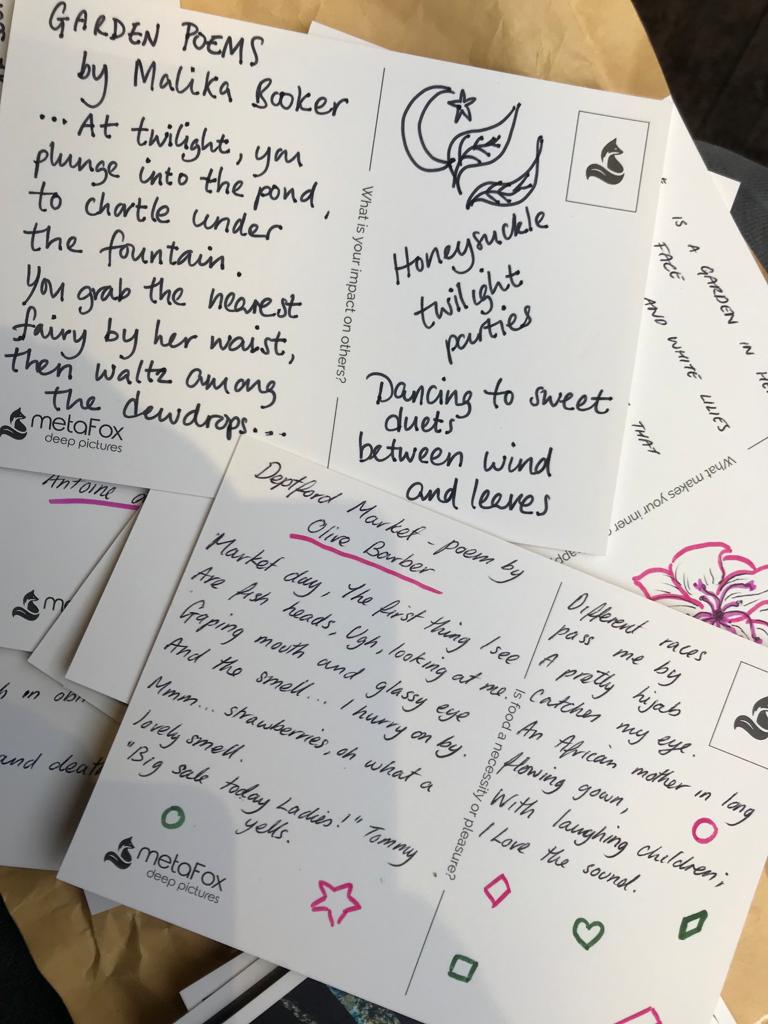 GARDEN POEMS
by Malika Booker
... At twilight, you
plunge into the pond,
to chortle under
the fountain.
You grab the nearest
fairy by her waist,
then waltz among
the dewdrops...
metaFox
deep pictures
What is your impact on others?
Honeysuckle
twilight
parties
Dancing to sweet
duets
between wind
and leaves
IS A GARDEN IN
FACE
AND WHITE LILIES
THAT
What makes your inner
Antoine
Deptford Market - poem by
Olive Barber
"Market day, The first thing I see
Are fish heads, Ugh, looking at me.
Gaping mouth and glassy eye
And the smell... I hurry on by.
Mmm... strawberries, oh what a
lovely smell.
"Big sale today Ladies!" Tommy
yells.
metaFox
deep pictures
Is food a necessity or pleasure?
Different races
pass me by
A pretty hijab
Catches my eye.
An African mother in long
flowing gown,
With laughing children;
I Love the sound.
and death